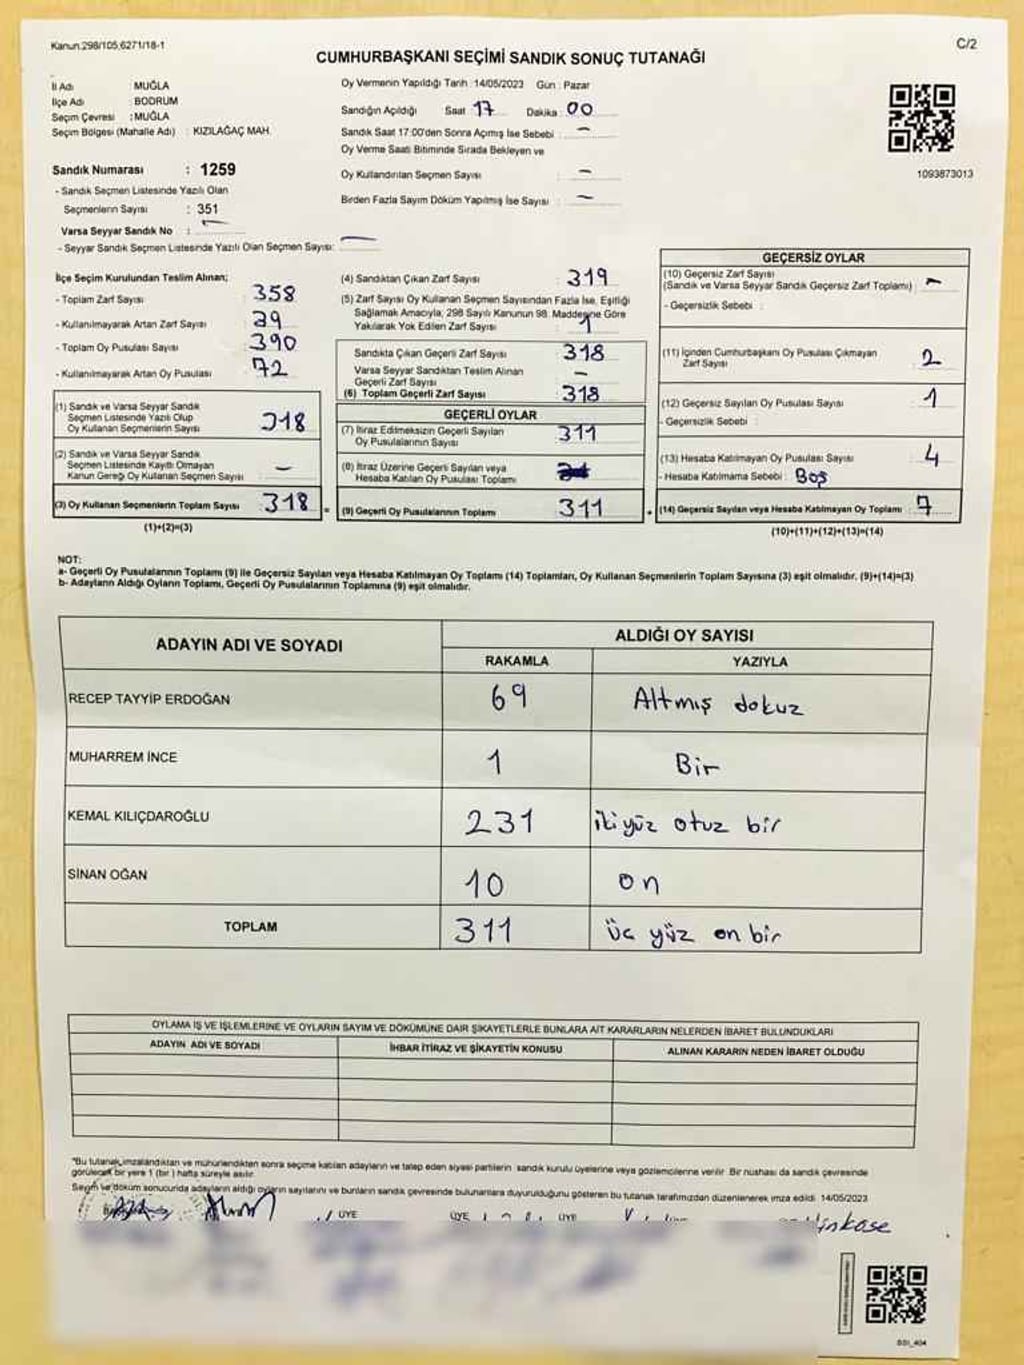 Kanun:298/105,6271/18-1
C/2
CUMHURBAŞKANI SEÇİMİ SANDIK SONUÇ TUTANAĞI
İl Adı : MUĞLA
İlçe Adı : BODRUM
Seçim Çevresi : MUĞLA
Seçim Bölgesi (Mahalle Adı) : KIZILAĞAÇ MAH.
Oy Vermenin Yapıldığı Tarih :14/05/2023 Gün : Pazar
Sandığın Açıldığı Saat 17 Dakika 00
Sandık Saat 17:00'den Sonra Açımış İse Sebebi : -
Oy Verme Saati Bitiminde Sırada Bekleyen ve
Oy Kullandırılan Seçmen Sayısı : -
Birden Fazla Sayım Döküm Yapılmış İse Sayısı : -
1093873013
Sandık Numarası : 1259
- Sandık Seçmen Listesinde Yazılı Olan
Seçmenlerin Sayısı : 351
Varsa Seyyar Sandık No : -
- Seyyar Sandık Seçmen Listesinde Yazılı Olan Seçmen Sayısı: -
İlçe Seçim Kurulundan Teslim Alınan;
- Toplam Zarf Sayısı : 358
- Kullanılmayarak Artan Zarf Sayısı : 39
- Toplam Oy Pusulası Sayısı : 390
- Kullanılmayarak Artan Oy Pusulası : 72
(1) Sandık ve Varsa Seyyar Sandık
Seçmen Listesinde Yazılı Olup
Oy Kullanan Seçmenlerin Sayısı : 318
(2) Sandık ve Varsa Seyyar Sandık
Seçmen Listesinde Kayıtlı Olmayan
Kanun Gereği Oy Kullanan Seçmen Sayısı : -
(3) Oy Kullanan Seçmenlerin Toplam Sayısı : 318
(1)+(2)=(3)
(4) Sandıktan Çıkan Zarf Sayısı : 319
(5) Zarf Sayısı Oy Kullanan Seçmen Sayısından Fazla İse, Eşitliği
Sağlamak Amacıyla; 298 Sayılı Kanunun 98. Maddesine Göre
Yakılarak Yok Edilen Zarf Sayısı : 1
Sandıkta Çıkan Geçerli Zarf Sayısı : 318
Varsa Seyyar Sandıktan Teslim Alınan
Geçerli Zarf Sayısı : -
(6) Toplam Geçerli Zarf Sayısı : 318
GEÇERLİ OYLAR
(7) İtiraz Edilmeksizin Geçerli Sayılan
Oy Pusulalarının Sayısı : 311
(8) İtiraz Üzerine Geçerli Sayılan veya
Hesaba Katılan Oy Pusulası Toplamı :
(9) Geçerli Oy Pusulalarının Toplamı : 311
GEÇERSİZ OYLAR
(10) Geçersiz Zarf Sayısı
(Sandık ve Varsa Seyyar Sandık Geçersiz Zarf Toplamı) : -
- Geçersizlik Sebebi :
(11) İçinden Cumhurbaşkanı Oy Pusulası Çıkmayan
Zarf Sayısı : 2
(12) Geçersiz Sayılan Oy Pusulası Sayısı : 1
- Geçersizlik Sebebi :
(13) Hesaba Katılmayan Oy Pusulası Sayısı : 4
- Hesaba Katılmama Sebebi : Boş
(14) Geçersiz Sayılan veya Hesaba Katılmayan Oy Toplamı : 7
(10)+(11)+(12)+(13)=(14)
NOT:
a- Geçerli Oy Pusulalarının Toplamı (9) ile Geçersiz Sayılan veya Hesaba Katılmayan Oy Toplamı (14) Toplamları, Oy Kullanan Seçmenlerin Toplam Sayısına (3) eşit olmalıdır. (9)+(14)=(3)
b- Adayların Aldığı Oyların Toplamı, Geçerli Oy Pusulalarının Toplamına (9) eşit olmalıdır.
ADAYIN ADI VE SOYADI ALDIĞI OY SAYISI
RAKAMLA YAZIYLA
RECEP TAYYİP ERDOĞAN 69 Altmış dokuz
MUHARREM İNCE 1 Bir
KEMAL KILIÇDAROĞLU 231 ikiyüz otuz bir
SİNAN OĞAN 10 on
TOPLAM 311 üç yüz on bir
OYLAMA İŞ VE İŞLEMLERİNE VE OYLARIN SAYIM VE DÖKÜMÜNE DAİR ŞİKAYETLERLE BUNLARA AİT KARARLARIN NELERDEN İBARET BULUNDUKLARI
ADAYIN ADI VE SOYADI İHBAR İTİRAZ VE ŞİKAYETİN KONUSU ALINAN KARARIN NEDEN İBARET OLDUĞU
"Bu tutanak,imzalandıktan ve mühürlendikten sonra seçime katılan adayların ve talep eden siyasi partilerin sandık kurulu üyelerine veya gözlemcilerine verilir. Bir nüshası da sandık çevresinde
görülecek bir yere 1 (bir) hafta süreyle asılır.
Sayım ve döküm sonucunda adayların aldığı oyların sayılarını ve bunların sandık çevresinde bulunanlara duyurulduğunu gösteren bu tutanak tarafımızdan düzenlenerek imza edildi. 14/05/2023
ÜYE ÜYE ÜYE
SSI_404